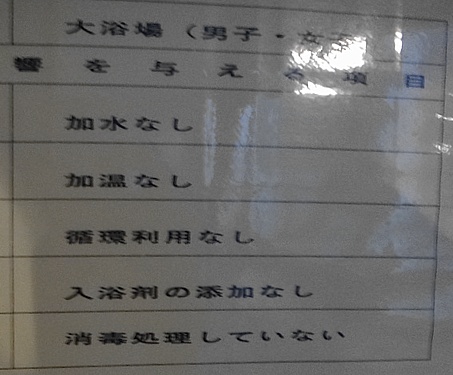 大浴場（男子・女子）
響を与える項目
加水なし
加温なし
循環利用なし
入浴剤の添加なし
消毒処理していない